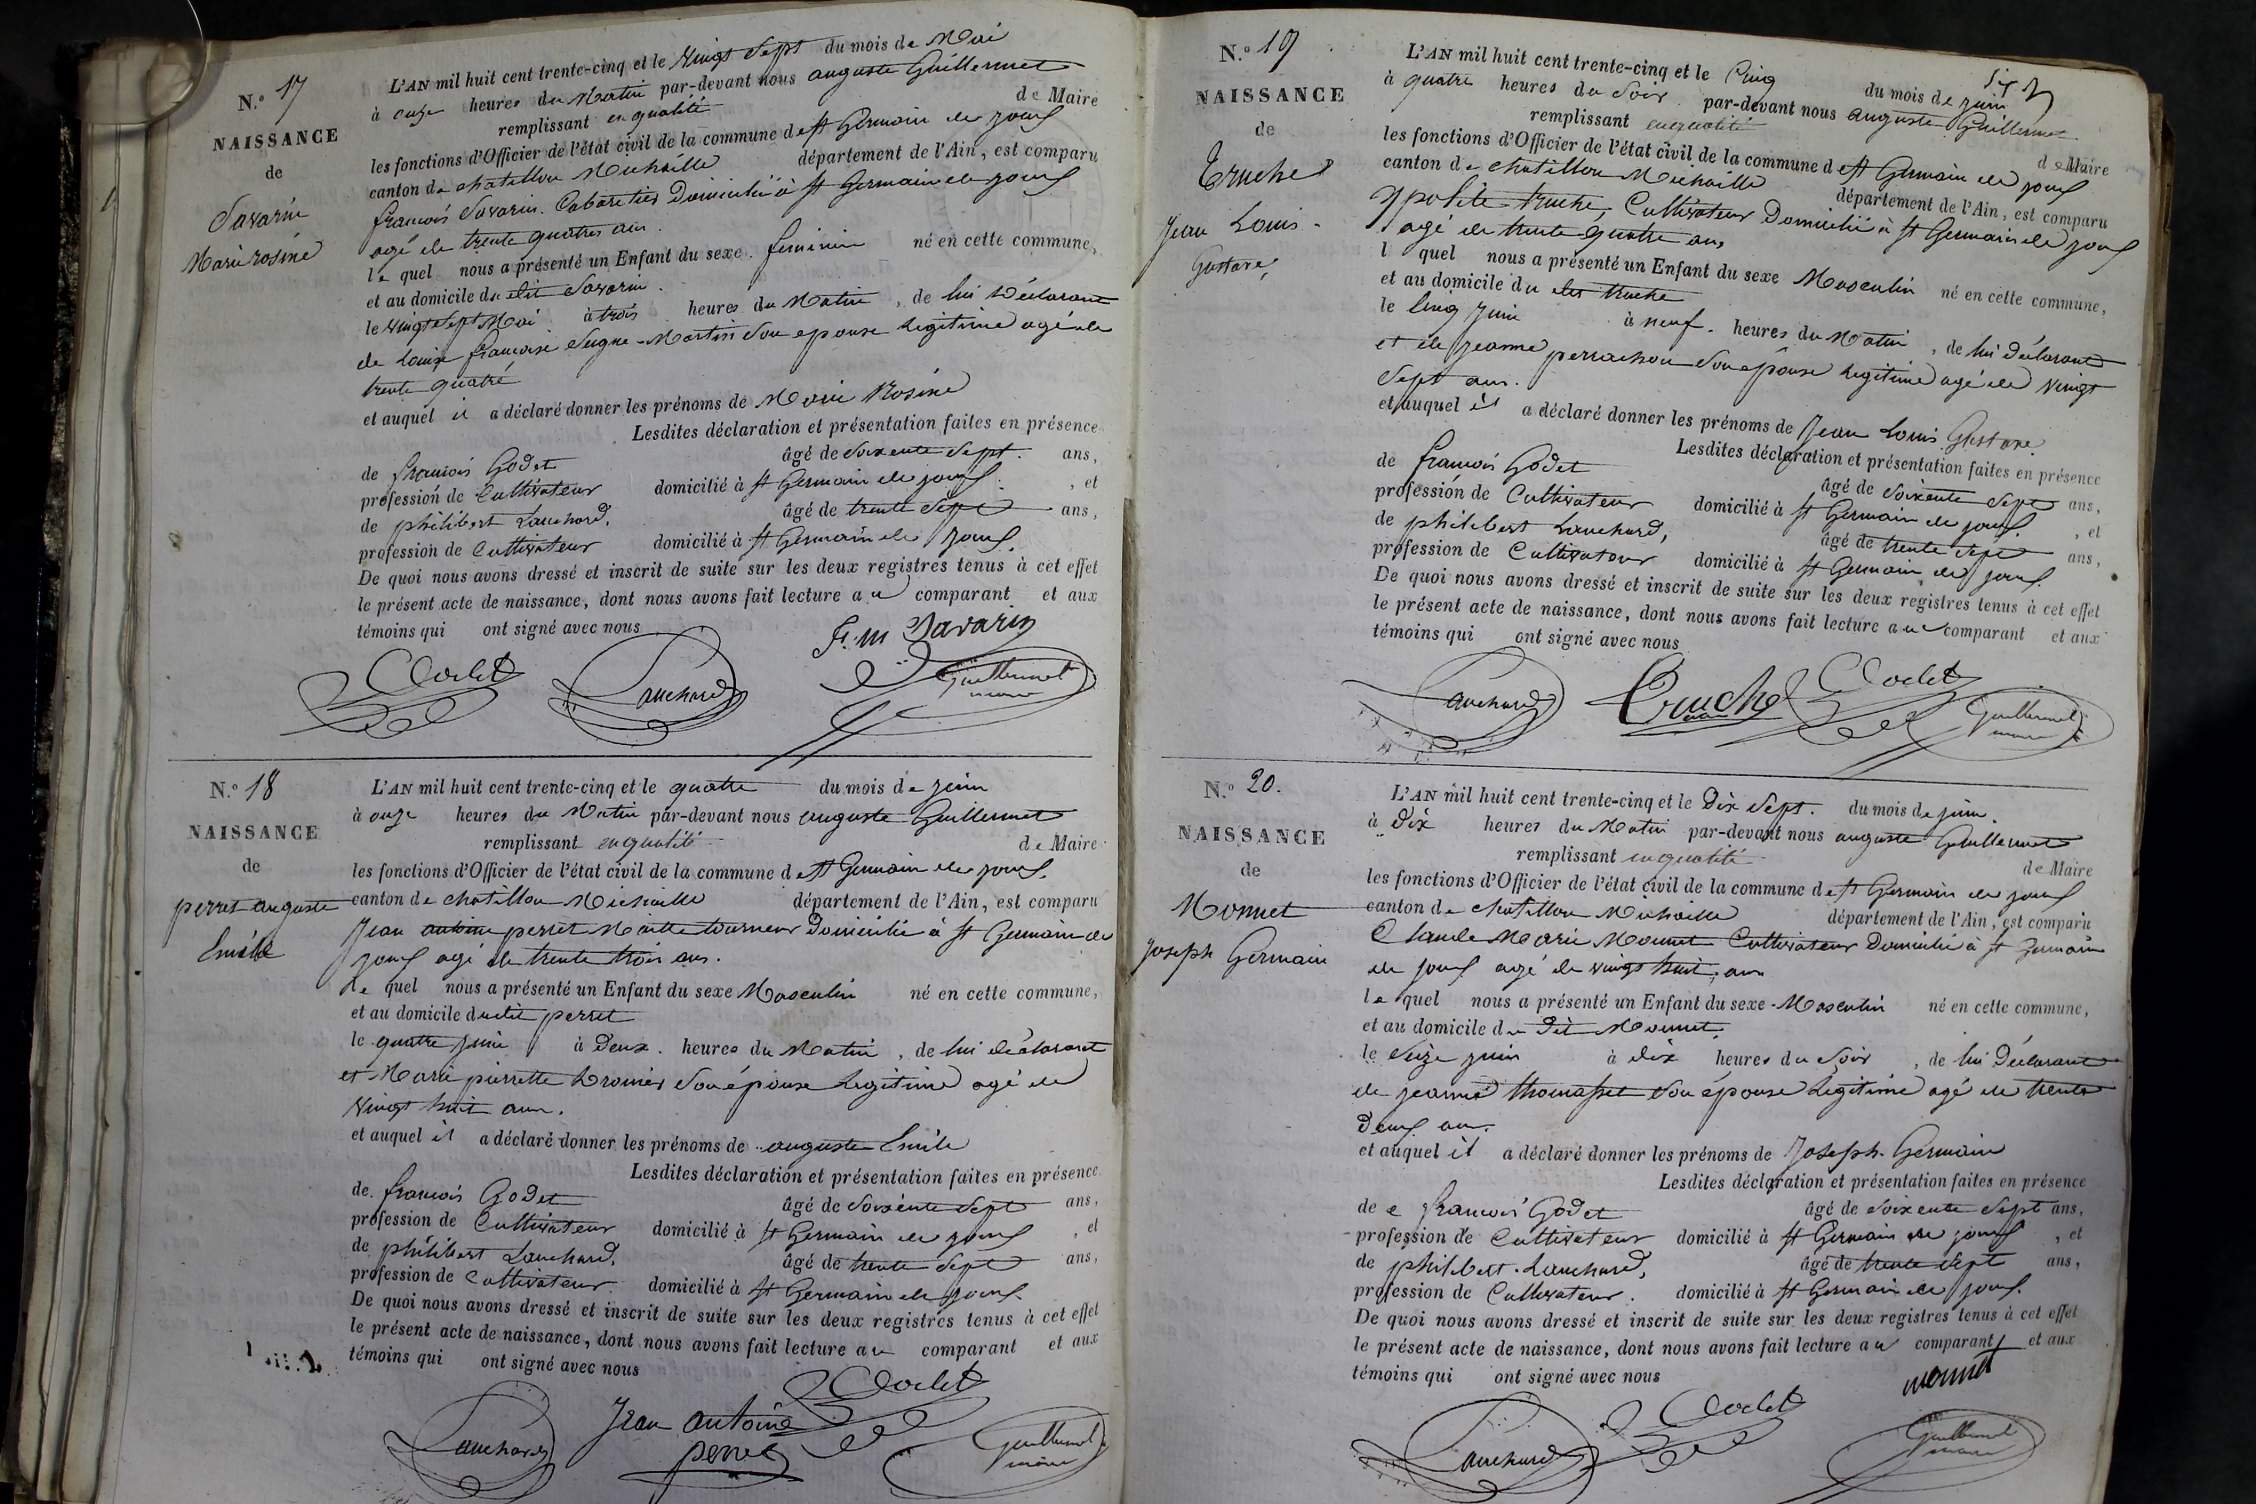 N.o 17
NAISSANCE
de
Savarin
Marie rosine
L'AN mil huit cent trente-cinq et le vingt sept du mois de Mai
à onze heures du Matin par-devant nous auguste Guillermet
remplissant en qualité de Maire
les fonctions d'Officier de l'état civil de la commune de St Germain de joux
canton de chatillon Michaille département de l'Ain, est comparu
francois Savarin. Cabaretier Domicilié à St Germain de joux
agé de trente quatres ans.
le quel nous a présenté un Enfant du sexe feminin né en cette commune,
et au domicile du dit Savarin.
le vingt sept Mai à trois heures du Matin, de lui Déclarant
de Louise francoise Martin Son epouse Legitime agé de
trente quatre
et auquel il a déclaré donner les prénoms de Marie Rosine
Lesdites déclaration et présentation faites en présence
de francois Godet âgé de Soixente Sept ans,
profession de Cultivateur domicilié à St Germain de joux, et
de philibert Lauchard, âgé de trente Sept ans,
profession de Cultivateur domicilié à St Germain de joux.
De quoi nous avons dressé et inscrit de suite sur les deux registres tenus à cet effet
le présent acte de naissance, dont nous avons fait lecture au comparant et aux
témoins qui ont signé avec nous
f. m Savarin
Godet Lauchard Guillermet
maire
N.o 18
NAISSANCE
de
perret auguste
Emile
L'AN mil huit cent trente-cinq et le quatre du mois de juin
à onze heures du Matin par-devant nous auguste Guillermet
remplissant en qualité de Maire
les fonctions d'Officier de l'état civil de la commune de St Germain de joux.
canton de chatillon Michaille département de l'Ain, est comparu
Jean antoine perret Maitre tourneur Domicilié à St Germain de
joux agé de trente trois ans.
le quel nous a présenté un Enfant du sexe Masculin né en cette commune,
et au domicile du dit perret
le quatre juin à Deux. heures du Matin, de lui déclarant
et Marie pierrette Son épouse Legitime agé de
vingt huit ans.
et auquel il a déclaré donner les prénoms de auguste Emile
Lesdites déclaration et présentation faites en présence
de francois Godet âgé de Soixente Sept ans,
profession de Cultivateur domicilié à St Germain de joux, et
de philibert Lauchard, âgé de trente Sept ans,
profession de Cultivateur domicilié à St Germain de joux.
De quoi nous avons dressé et inscrit de suite sur les deux registres tenus à cet effet
le présent acte de naissance, dont nous avons fait lecture au comparant et aux
témoins qui ont signé avec nous
Godet
Lauchard Jean antoine Guillermet
perret maire
N.o 19
NAISSANCE
de
Truche
Jean Louis
Gustave
L'AN mil huit cent trente-cinq et le Cinq du mois de juin
à quatre heures du Soir par-devant nous auguste Guillermet
remplissant en qualité de Maire
les fonctions d'Officier de l'état civil de la commune de St Germain de joux
canton de chatillon Michaille département de l'Ain, est comparu
ypolite truche, Cultivateur Domicilié à St Germain de joux
agé de trente quatre ans
l quel nous a présenté un Enfant du sexe Masculin né en cette commune,
et au domicile du dit truche
le Cinq juin à neuf. heures du Matin, de lui Déclarant
et de jeanne perrachon Son épouse Legitime agé de vingt
Sept ans.
et auquel il a déclaré donner les prénoms de Jean Louis Gustave
Lesdites déclaration et présentation faites en présence
de francois Godet âgé de Soixente Sept ans,
profession de Cultivateur domicilié à St Germain de joux, et
de philibert Lauchard, âgé de trente Sept ans,
profession de Cultivateur domicilié à St Germain de joux.
De quoi nous avons dressé et inscrit de suite sur les deux registres tenus à cet effet
le présent acte de naissance, dont nous avons fait lecture au comparant et aux
témoins qui ont signé avec nous
Lauchard Truche Godet Guillermet
maire
N.o 20.
NAISSANCE
de
Monnet
Joseph Germain
L'AN mil huit cent trente-cinq et le Dix Sept. du mois de juin.
à Dix heures du Matin par-devant nous auguste Guillermet
remplissant en qualité de Maire
les fonctions d'Officier de l'état civil de la commune de St Germain de joux
canton de chatillon Michaille département de l'Ain, est comparu
Claude Marie Monnet Cultivateur Domicilié à St Germain
de joux agé de vingt huit ans
le quel nous a présenté un Enfant du sexe Masculin né en cette commune,
et au domicile du Dit Monnet
le Seize juin à dix heures du Soir, de lui Déclarant
de jeanne thomasset Son épouse Legitime agé de trente
Deux ans.
et auquel il a déclaré donner les prénoms de Joseph Germain
Lesdites déclaration et présentation faites en présence
de e francois Godet âgé de Soixente Sept ans,
profession de Cultivateur domicilié à St Germain de joux, et
de philibert Lauchard, âgé de trente Sept ans,
profession de Cultivateur. domicilié à St Germain de joux.
De quoi nous avons dressé et inscrit de suite sur les deux registres tenus à cet effet
le présent acte de naissance, dont nous avons fait lecture au comparant et aux
témoins qui ont signé avec nous
monnet
Lauchard Godet Guillermet
maire